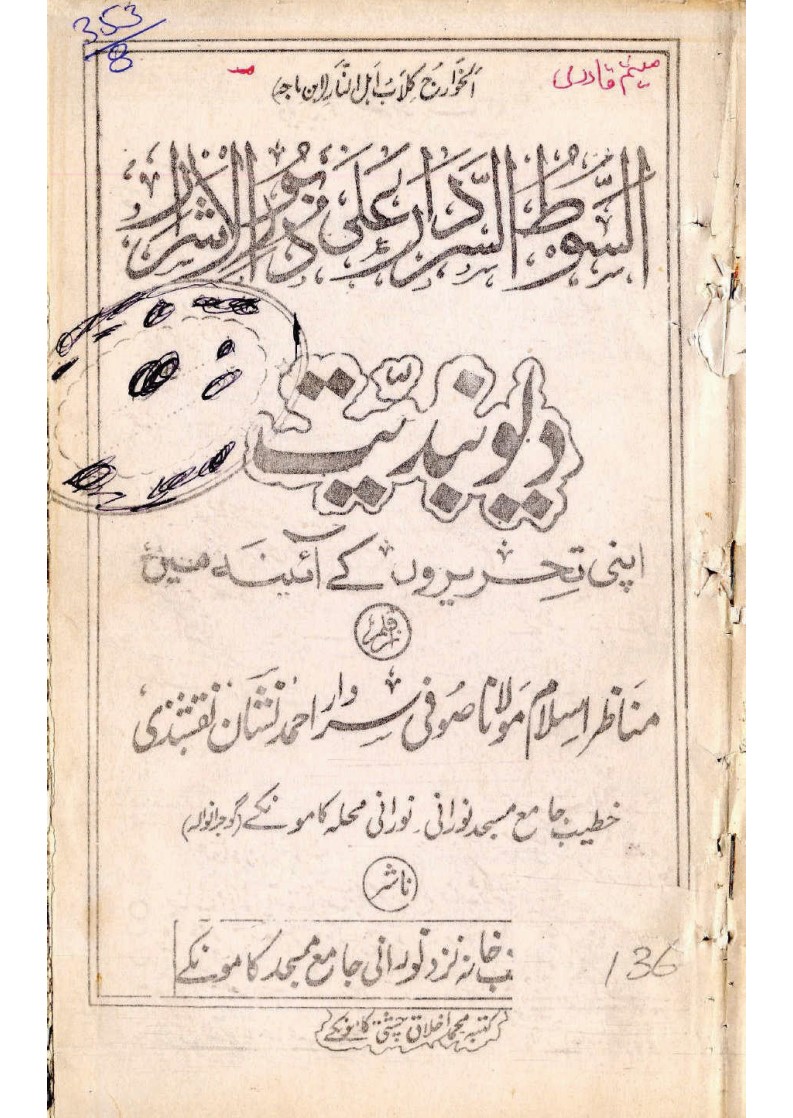 353/8
میثم قادری
الخوارج کلاب اہل النار (ابن ماجہ)
السوط السردار علی دبور الاشرار
دیوبندیت
اپنی تحریروں کے آئینہ میں
از قلم
مناظر اسلام مولانا صوفی سردار احمد نشان نقشبندی
خطیب جامع مسجد نورانی، نورانی محلہ کامونکے (گوجرانوالہ)
ناشر
خانہ نزد نورانی جامع مسجد کامونکے
136
کتبہ محمد اخلاق چشتی کامونکے